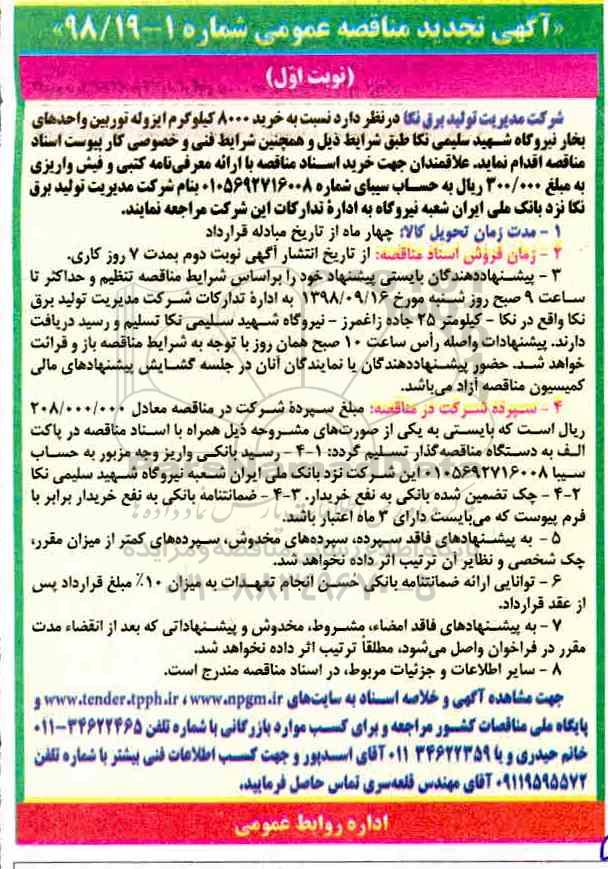 «آگهی تجدید مناقصه عمومی شماره ۱-۹۸/۱۹»
(نوبت اوّل)
شرکت مدیریت تولید برق نکا درنظر دارد نسبت به خرید ۸۰۰۰ کیلوگرم ایزوله توربین واحدهای
بخار نیروگاه شهید سلیمی نکا طبق شرایط ذیل و همچنین شرایط فنی و خصوصی کار پیوست اسناد
مناقصه اقدام نماید. علاقمندان جهت خرید اسناد مناقصه با ارائه معرفی‌نامه کتبی و فیش واریزی
به مبلغ ۳۰۰/۰۰۰ ریال به حساب سیبای شماره ۰۱۰۵۶۹۲۷۱۶۰۰۸ بنام شرکت مدیریت تولید برق
نکا نزد بانک ملی ایران شعبه نیروگاه به ادارهٔ تدارکات این شرکت مراجعه نمایند.
۱ - مدت زمان تحویل کالا: چهار ماه از تاریخ مبادله قرارداد
۲ - زمان فروش اسناد مناقصه: از تاریخ انتشار آگهی نوبت دوم بمدت ۷ روز کاری.
۳ - پیشنهاددهندگان بایستی پیشنهاد خود را براساس شرایط مناقصه تنظیم و حداکثر تا
ساعت ۹ صبح روز شنبه مورخ ۱۳۹۸/۰۹/۱۶ به ادارهٔ تدارکات شرکت مدیریت تولید برق
نکا واقع در نکا - کیلومتر ۲۵ جاده زاغمرز - نیروگاه شهید سلیمی نکا تسلیم و رسید دریافت
دارند. پیشنهادات واصله رأس ساعت ۱۰ صبح همان روز با توجه به شرایط مناقصه باز و قرائت
خواهد شد. حضور پیشنهاددهندگان یا نمایندگان آنان در جلسه گشایش پیشنهادهای مالی
کمیسیون مناقصه آزاد می‌باشد.
۴ - سپرده شرکت در مناقصه: مبلغ سپردهٔ شرکت در مناقصه معادل ۲۰۸/۰۰۰/۰۰۰
ریال است که بایستی به یکی از صورت‌های مشروحه ذیل همراه با اسناد مناقصه در پاکت
الف به دستگاه مناقصه‌گذار تسلیم گردد: ۱-۴ - رسید بانکی واریز وجه مزبور به حساب
سیبا ۰۱۰۵۶۹۲۷۱۶۰۰۸ این شرکت نزد بانک ملی ایران شعبه نیروگاه شهید سلیمی نکا
۲-۴ - چک تضمین شده بانکی به نفع خریدار. ۳-۴ - ضمانتنامهٔ بانکی به نفع خریدار برابر با
فرم پیوست که می‌بایست دارای ۳ ماه اعتبار باشد.
۵ - به پیشنهادهای فاقد سپرده، سپرده‌های مخدوش، سپرده‌های کمتر از میزان مقرر،
چک شخصی و نظایر آن ترتیب اثر داده نخواهد شد.
۶ - توانایی ارائه ضمانتنامه بانکی حُسن انجام تعهدات به میزان ۱۰٪ مبلغ قرارداد پس
از عقد قرارداد.
۷ - به پیشنهادهای فاقد امضاء، مشروط، مخدوش و پیشنهاداتی که بعد از انقضاء مدت
مقرر در فراخوان واصل می‌شود، مطلقاً ترتیب اثر داده نخواهد شد.
۸ - سایر اطلاعات و جزئیات مربوط، در اسناد مناقصه مندرج است.
جهت مشاهده آگهی و خلاصه اسناد به سایت‌های www.npgm.ir ، www.tender.tpph.ir و
پایگاه ملی مناقصات کشور مراجعه و برای کسب موارد بازرگانی با شماره تلفن ۳۴۶۲۲۴۶۵-۰۱۱
خانم حیدری و یا ۳۴۶۲۲۳۵۹ ۰۱۱ آقای اسدپور و جهت کسب اطلاعات فنی بیشتر با شماره تلفن
۰۹۱۱۹۵۹۵۵۷۲ آقای مهندس قلعه‌سری تماس حاصل فرمایید.
اداره روابط عمومی